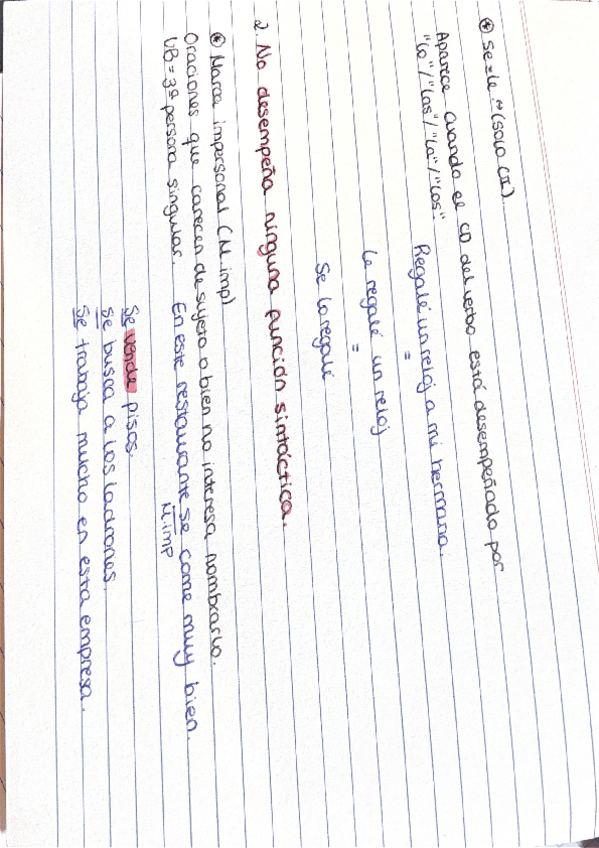 ⊛ Se = le → (solo CI).
Aparece cuando el CD del verbo está desempeñado por
"lo"/"las"/"la"/"los".
Regalé un reloj a mi hermano.
=
Le regalé un reloj
=
Se lo regalé
2 No desempeña ninguna función sintáctica.
⊛ Marca impersonal (M. imp)
Oraciones que carecen de sujeto o bien no interesa nombrarlo.
VB = 3ª persona singular. En este restaurante se come muy bien.
M. imp
Se vende pisos.
Se busca a los ladrones.
Se trabaja mucho en esta empresa.